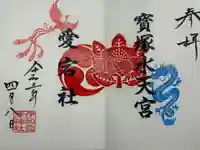 奉拝
寳塚水天宮
愛宕社
令和二年
四月八日